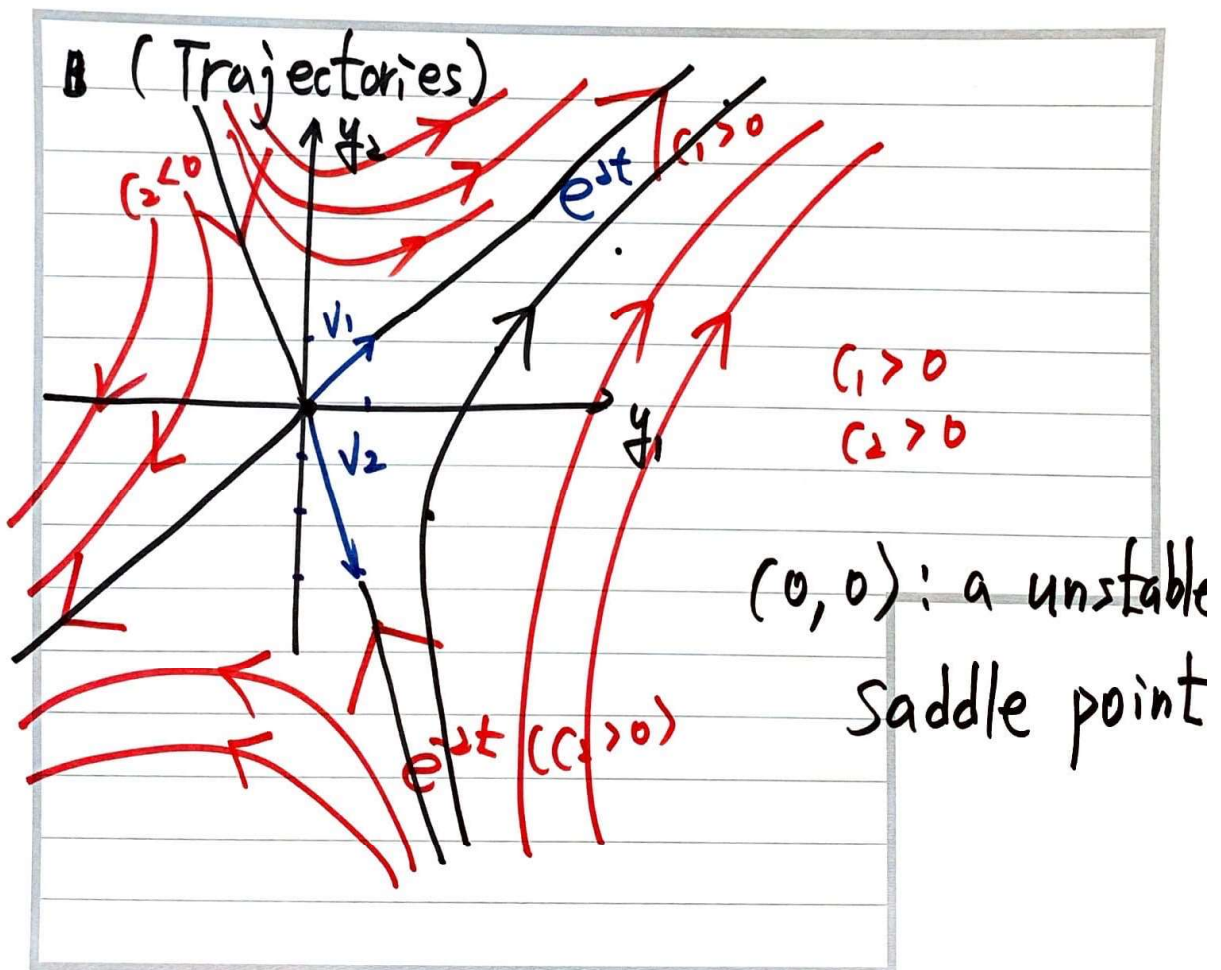 (Trajectories)
y₂
C₂<0
C₁>0
e²ᵗ
V₁
C₁>0
y₁
C₂>0
V₂
(0,0): a unstable
saddle point
e⁻²ᵗ (C₂>0)